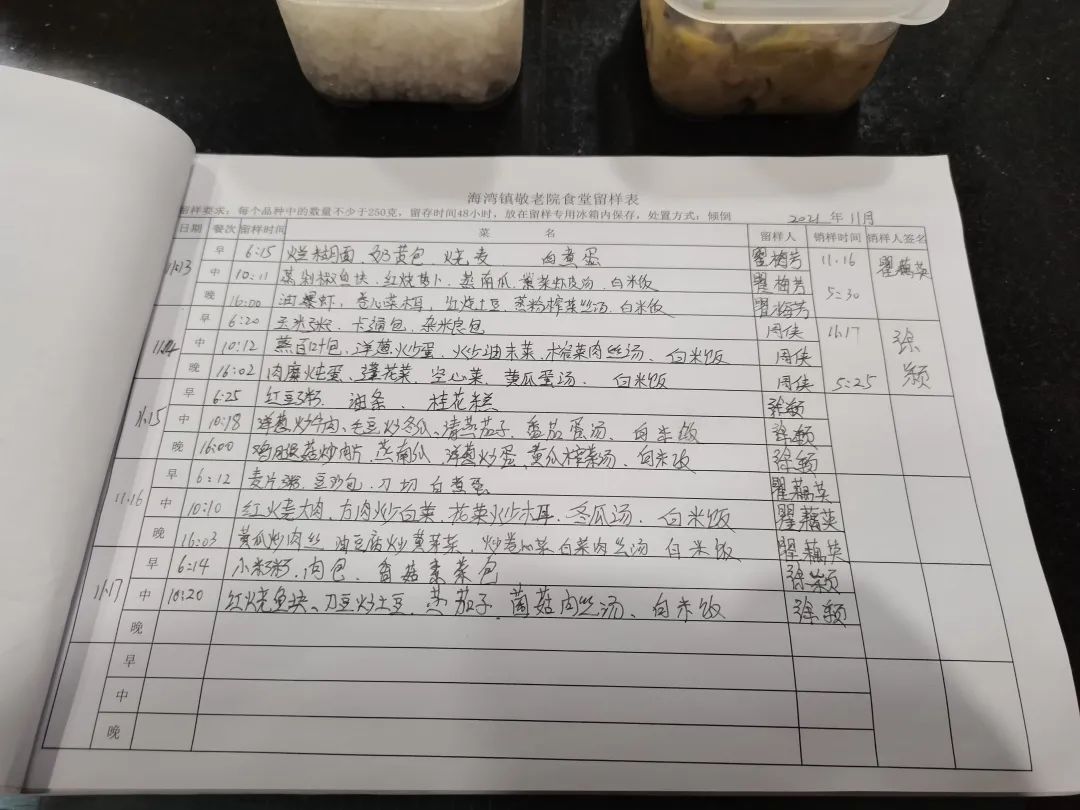 海湾镇敬老院食堂留样表
留样要求：每个品种中的数量不少于250克，留存时间48小时，放在留样专用冰箱内保存，处置方式：倾倒 2021 年 11月
日期 餐次 留样时间 菜 名 留样人 销样时间 销样人签名
11.13 早 6:15 烂糊面 奶黄包 烧麦 白煮蛋 瞿梅芳 11.16 瞿藕英
中 10:11 蒸剁椒鱼块、红烧萝卜、蒸南瓜、紫菜虾皮汤、白米饭 瞿梅芳
晚 16:00 油爆虾、卷心菜木耳、红烧土豆、蒸粉 榨菜丝汤、白米饭 瞿梅芳 5:30
早 6:20 玉米粥、卡通包、杂粮包 周侠 11.17 徐颖
中 10:12 蒸百叶包、洋葱炒蛋、炒油末菜、榨菜肉丝汤、白米饭 周侠
晚 16:02 肉糜炖蛋、蓬花菜、空心菜、黄瓜蛋汤、白米饭 周侠 5:25
11.15 早 6:25 红豆粥、油条、桂花糕 徐颖
中 10:18 洋葱炒牛肉、毛豆炒冬瓜、清蒸茄子、番茄蛋汤、白米饭 徐颖
晚 16:00 鸡腿菇炒肉片、蒸南瓜、洋葱炒蛋、黄瓜榨菜汤、白米饭 徐颖
11.16 早 6:12 麦片粥、豆沙包、刀切 白煮蛋 瞿藕英
中 10:10 红烧大肉、方肉炒白菜、花菜炒木耳、冬瓜汤、白米饭 瞿藕英
晚 16:03 黄瓜炒肉丝 油豆腐炒黄芽菜、炒卷心菜 白菜肉丝汤 白米饭 瞿藕英
11.17 早 6:14 小米粥、肉包、香菇素菜包 徐颖
中 10:20 红烧鱼块、刀豆炒土豆、蒸茄子、菌菇肉丝汤、白米饭 徐颖
晚
早
中
晚